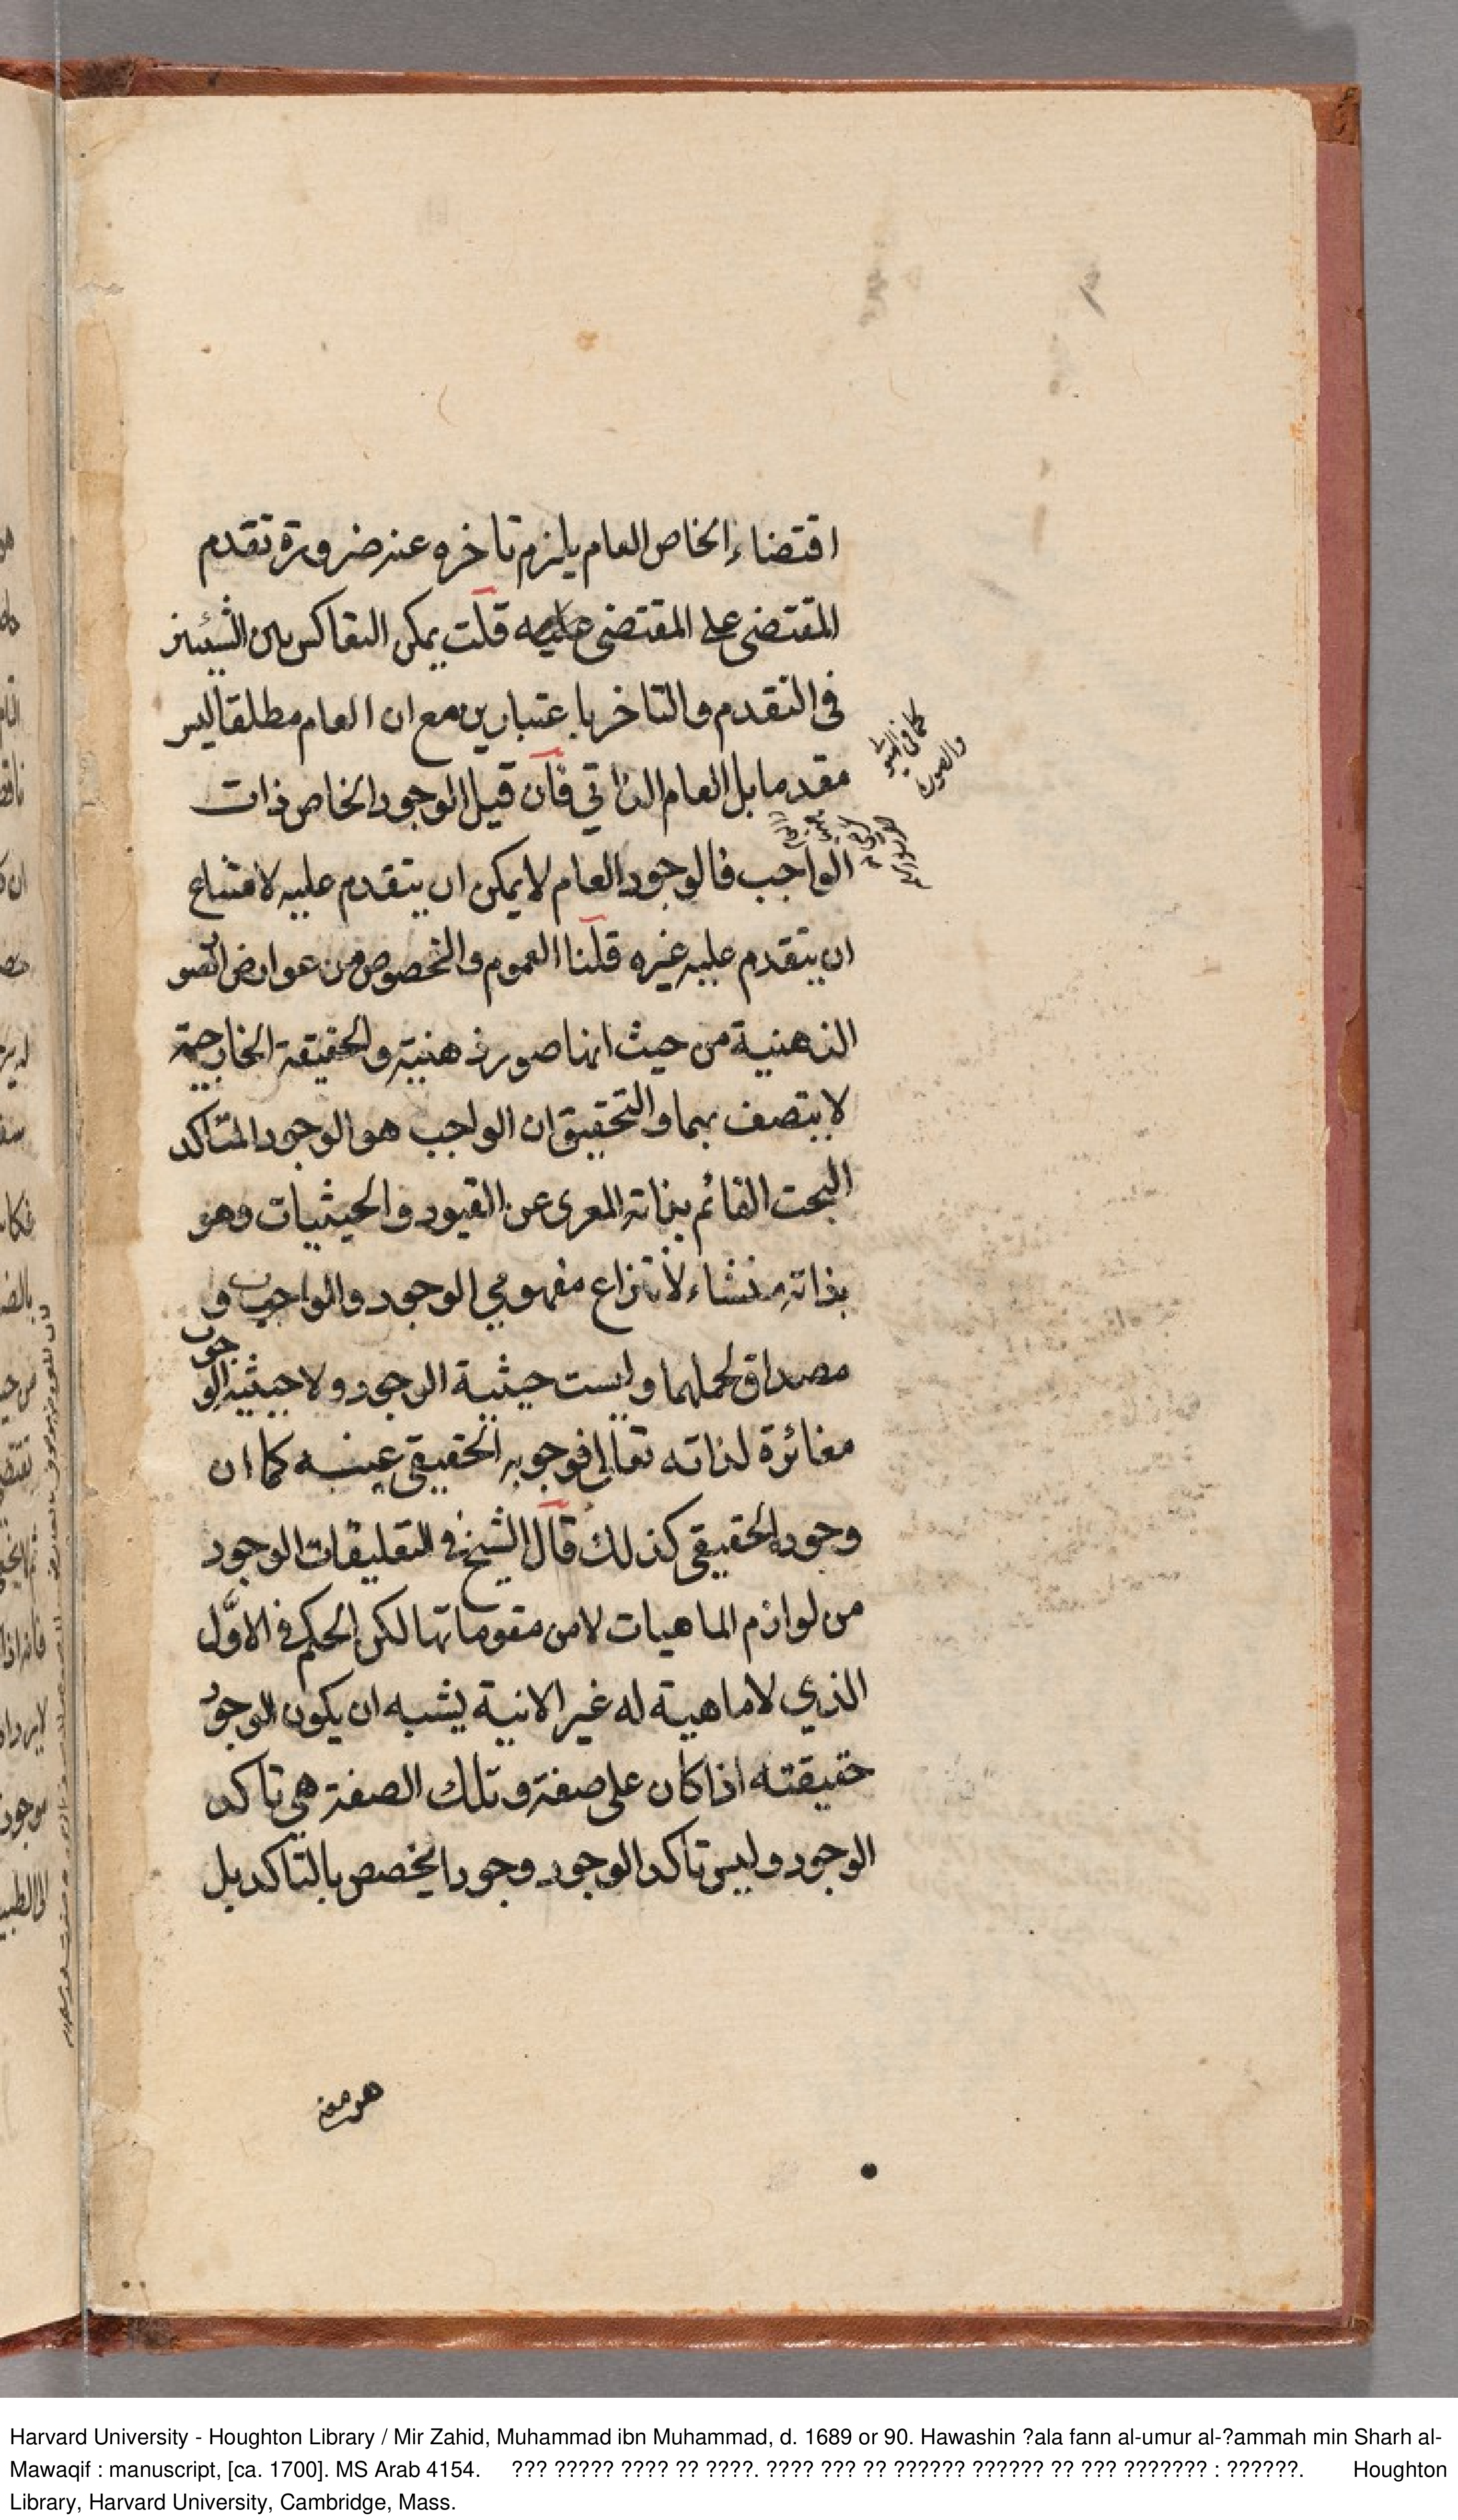 اقتضاء الخاص العام يلزم تاخره عنه ضرورة تقدم
المقتضى على المقتضى قلت يمكن التعاكس بين الشيئين
فى التقدم والتاخر باعتبارين مع ان العام مطلقا ليس
مقدما بل العام الذاتي فان قيل الوجود الخاص ذات
الواجب فالوجود العام لا يمكن ان يتقدم عليه لامتناع
ان يتقدم عليه غيره قلنا العموم والخصوص من عوارض الصور
الذهنية من حيث انها صور ذهنية والحقيقة الخارجية
لا يتصف بهما والتحقيق ان الواجب هو الوجود المتاكد
البحت القائم بذاته المعرى عن القيود والحيثيات وهو
بذاته منشاء لانتزاع مفهومي الوجود والواجب و
مصداق لحملهما وليست حيثية الوجود ولا حيثية الوجوب
مغائرة لذاته تعالى فوجوبه الحقيقي عينه كما ان
وجوده الحقيقي كذلك قال الشيخ في التعليقات الوجود
من لوازم الماهيات لا من مقوماتها لكن الحكم في الاوّل
الذي لا ماهية له غير الانية يشبه ان يكون الوجود
حقيقته اذا كان على صفة وتلك الصفة هي تاكد
الوجود وليس تاكد الوجود وجودا يخصص بالتاكد بل
كما في الهيولى
والصورة
هو معنى
Harvard University - Houghton Library / Mir Zahid, Muhammad ibn Muhammad, d. 1689 or 90. Hawashin ?ala fann al-umur al-?ammah min Sharh al-
Mawaqif : manuscript, [ca. 1700]. MS Arab 4154. ??? ????? ???? ?? ????. ???? ??? ?? ?????? ?????? ?? ??? ??????? : ??????. Houghton
Library, Harvard University, Cambridge, Mass.